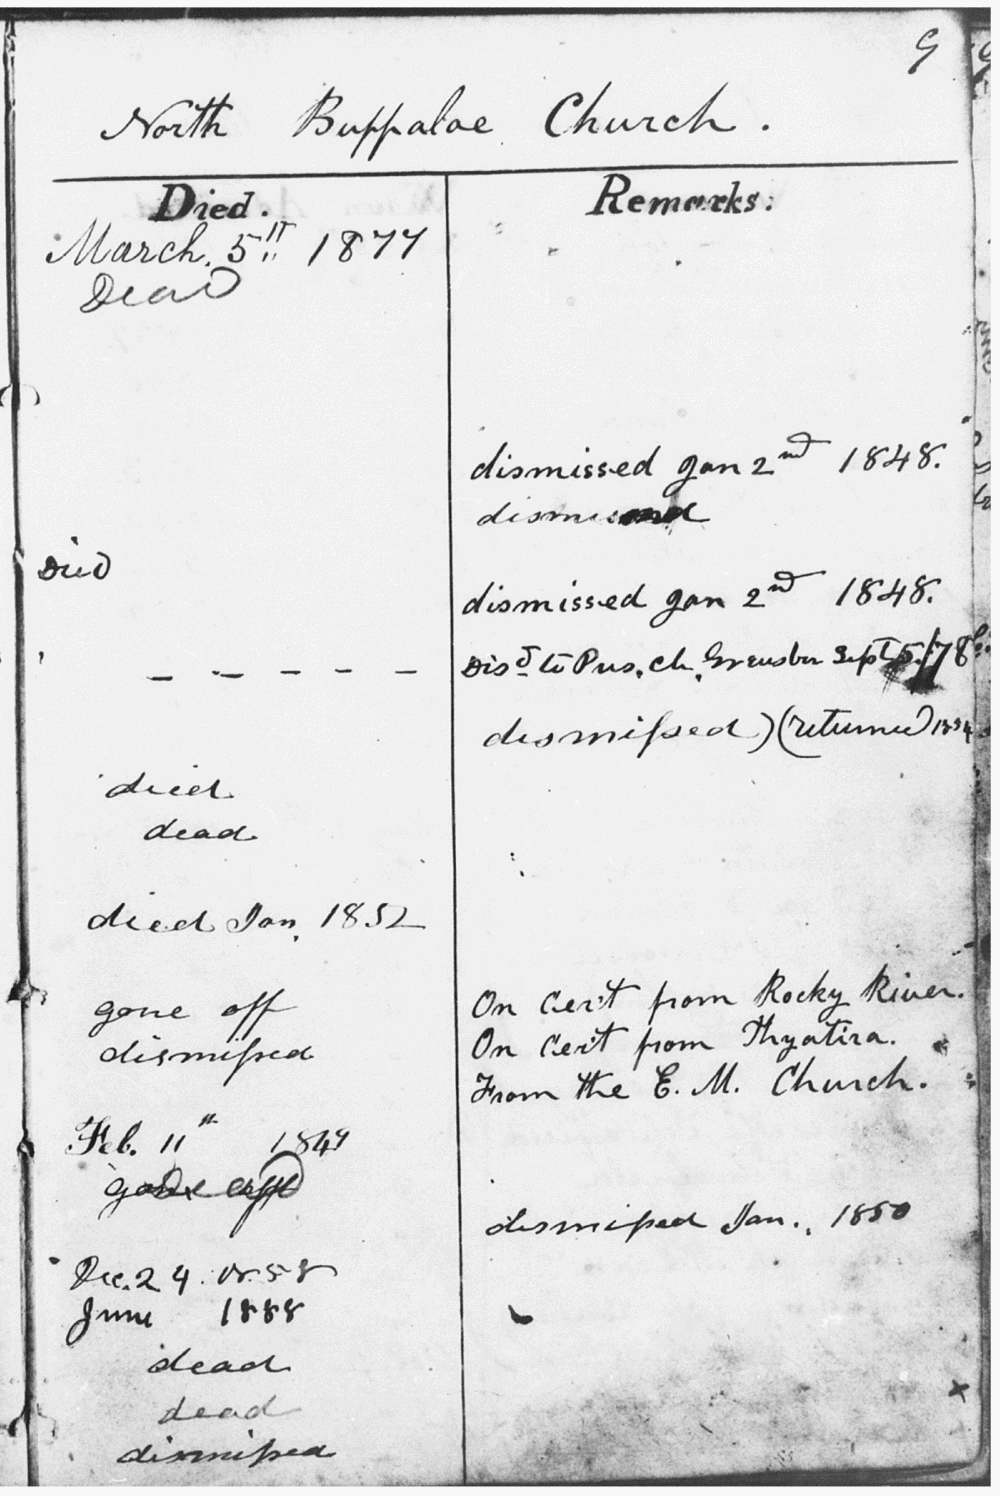 9
North Buffaloe Church.
Died. Remarks:
March. 5th 1877
Dead
dismissed Jan 2nd 1848.
dismissed
Died
dismissed Jan 2nd 1848.
- - - - - Disd to Pres. Ch. Greensbro Sept 5/78
dismissed) (returned) 1854
died
dead
died Jan. 1852
gone off On Cert from Rocky River.
dismissed On Cert from Thyatira.
From the E. M. Church.
Feb. 11th 1849
gone off
dismissed Jan., 1850
Dec. 24. 1858
June 1888
dead
dead
dismissed